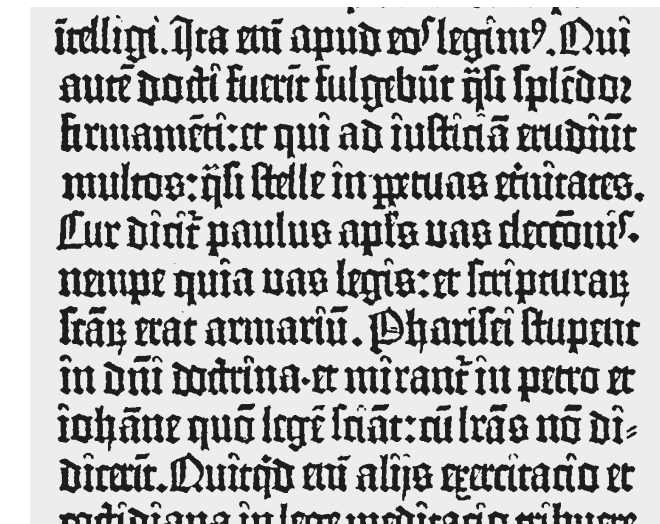 ītelligi. Ita eni apud eoſ legimꝰ. Qui
autē docti fuerīt fulgebūt q̄ſi ſplēdor
firmamēti: et qui ad iuſticiā erudiūt
multos: q̄ſi ſtelle in ꝑpetuas et̓nitates.
Cur dicit᷑ paulus apl̓s vas electōniſ.
nempe quia vas legis: et ſcripturaꝝ
ſcāꝝ erat armariū. Phariſei ſtupent
in dn̄i doctrina· et mirant᷑ in petro et
iohāne quō legē ſciāt: cū lr̄as nō di⸗
dicerīt. Quitq̇d eni alijs exercitacio et
cottidiana in lege meditacio tribuere